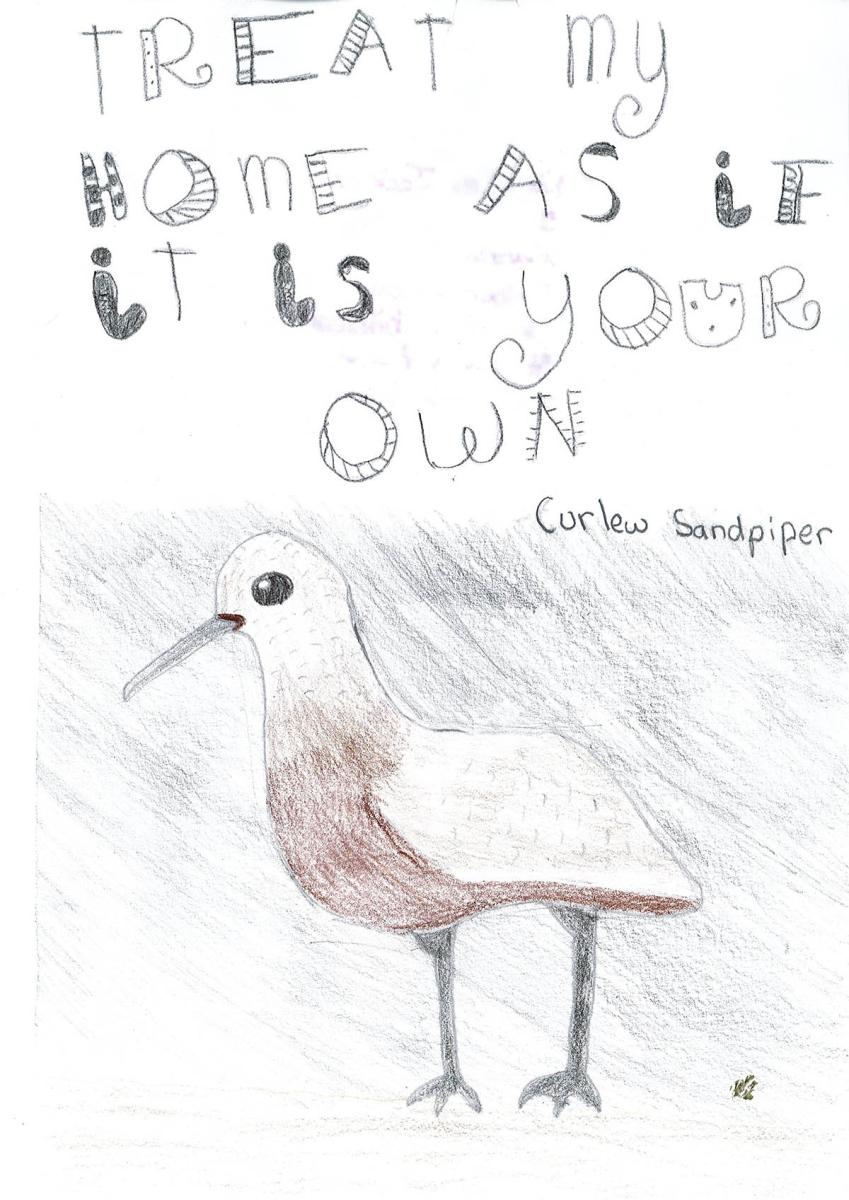 TREAT my
HOmE AS iF
iT iS yOUR
OWN
Curlew Sandpiper